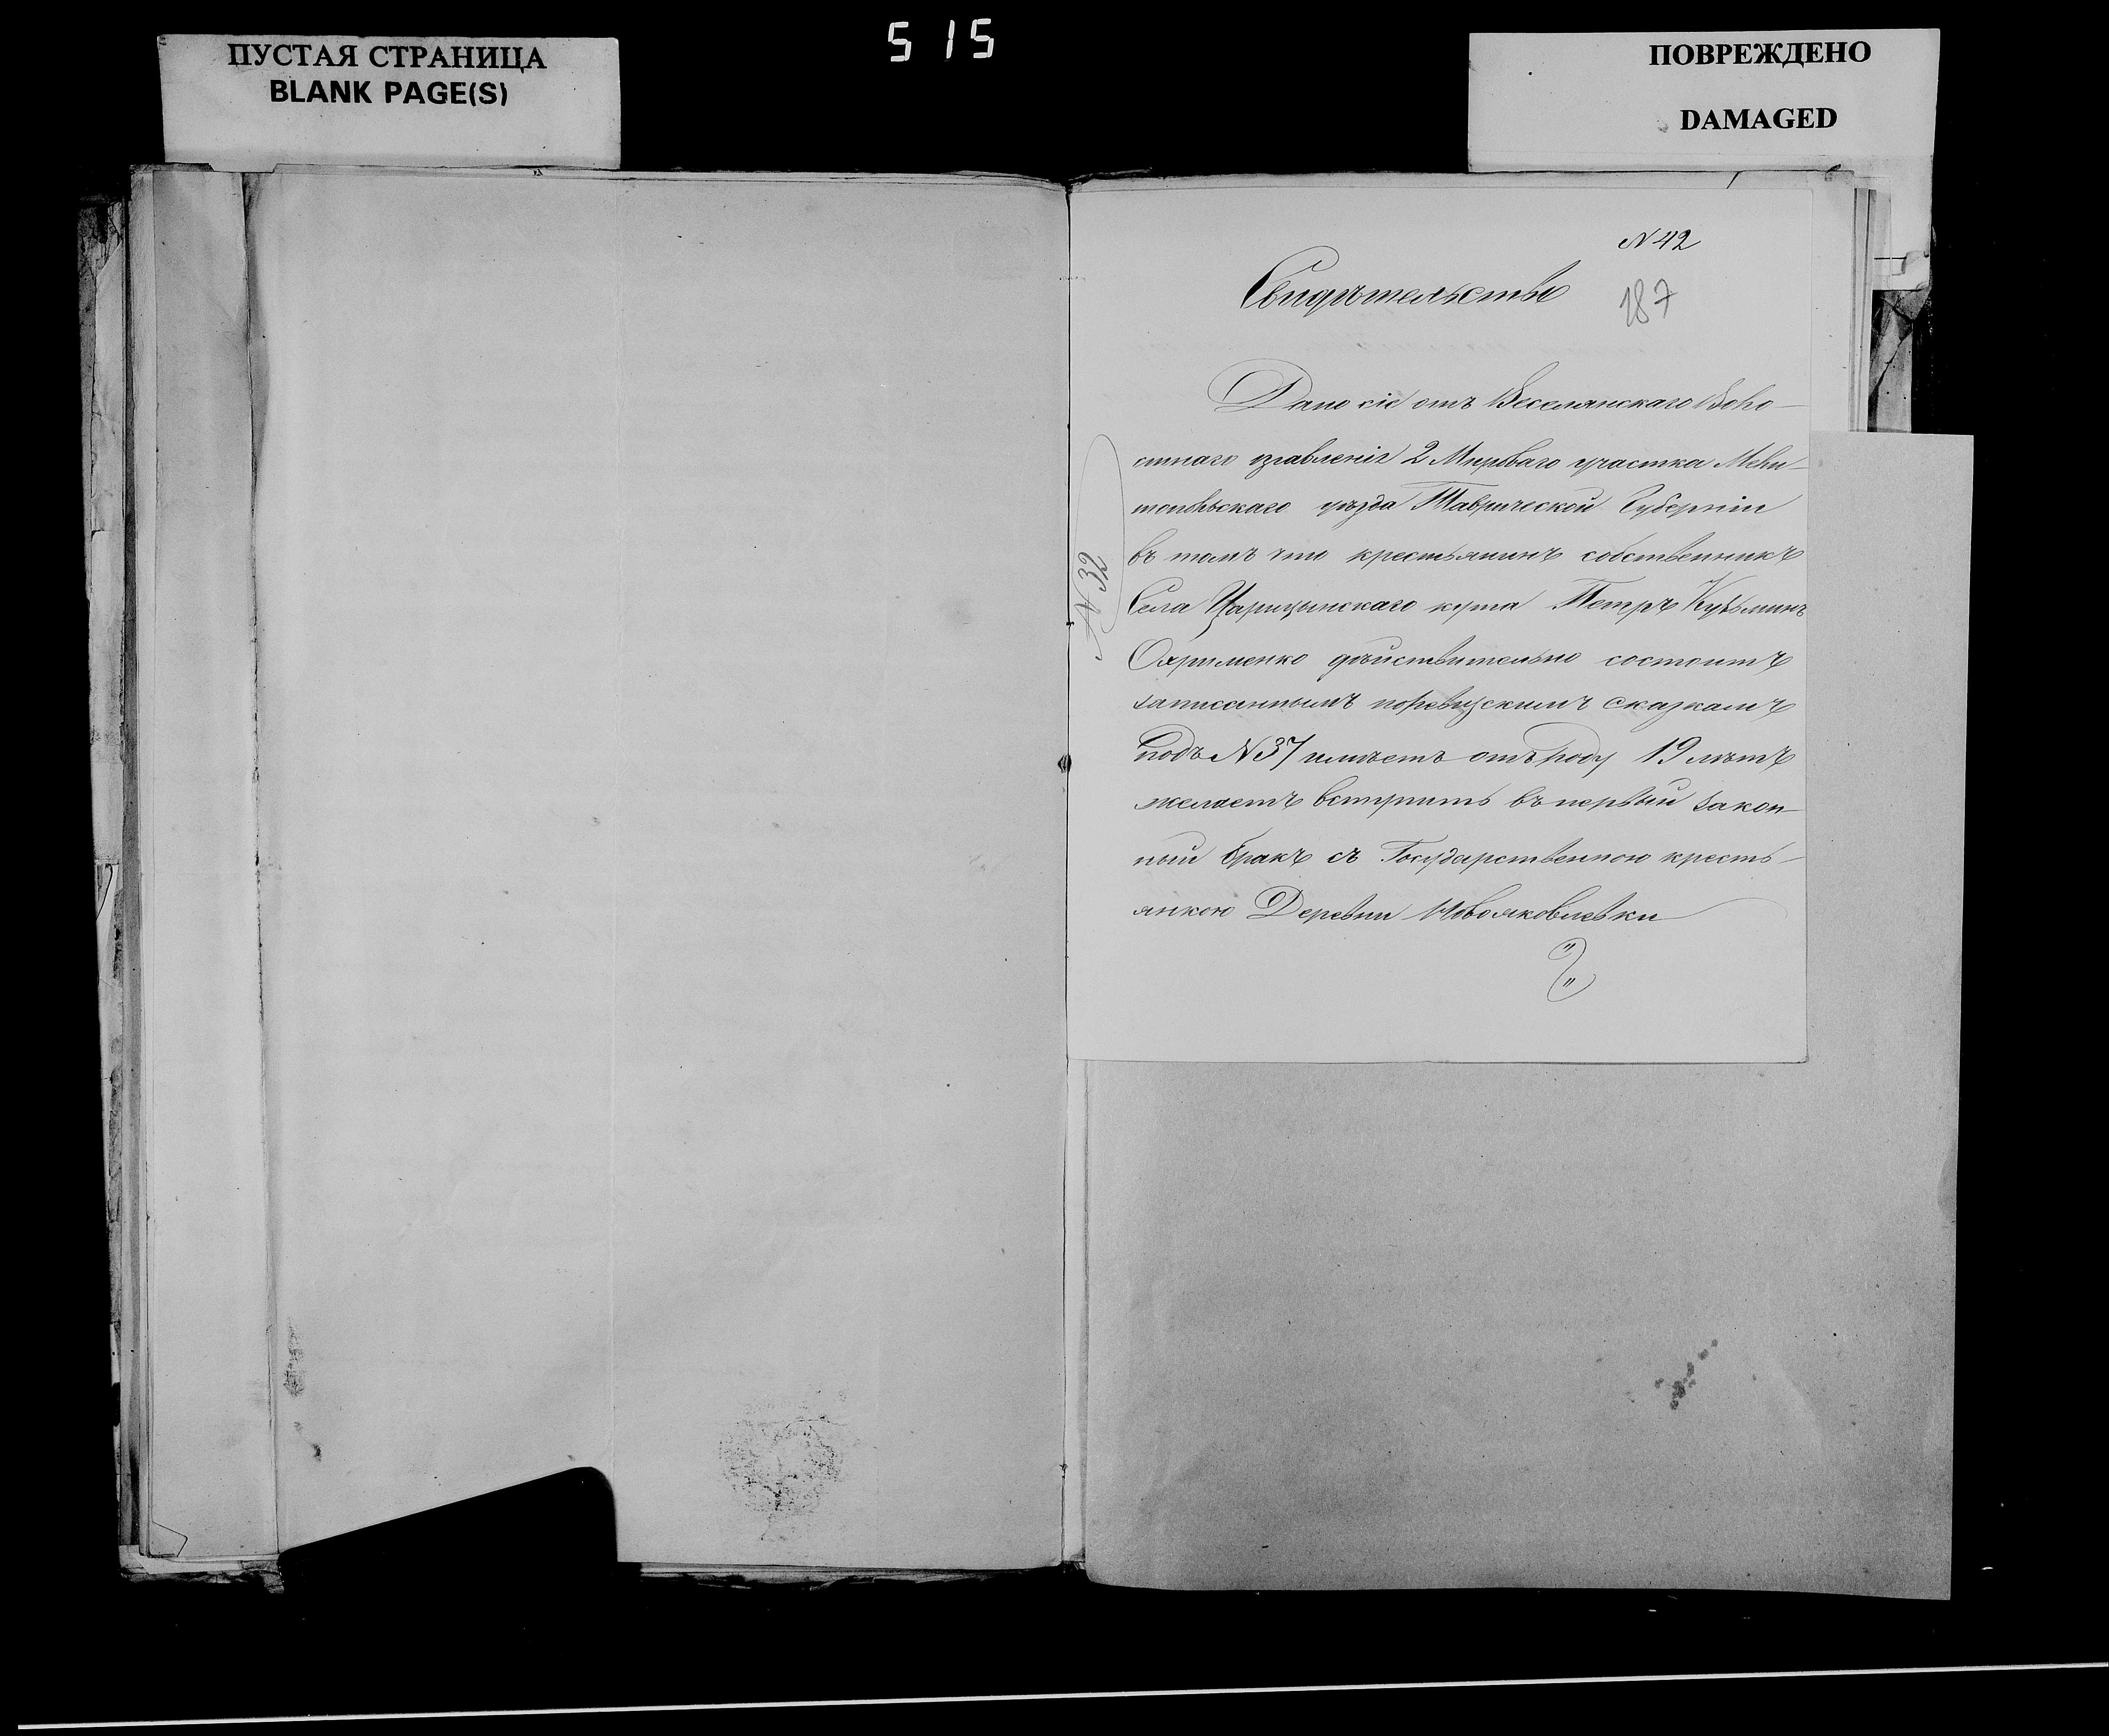 ПУСТАЯ СТРАНИЦА
BLANK PAGE(S)
515
ПОВРЕЖДЕНО
DAMAGED
N 42
Свидѣтельство
187
Дано сіе отъ Веселянскаго Воло-
стнаго правленія 2 Мироваго участка Мели-
топольскаго уѣзда Таврической Губерніи
въ томъ что крестьянинъ собственникъ
Села Царицынскаго кута Петръ Кузьминъ
Охрименко дѣйствительно состоитъ
записаннымъ поревизскимъ сказкамъ
подъ N 37 имѣетъ отъ роду 19 лѣтъ
желаетъ вступить въ первый закон-
ный бракъ съ Государственною кресть-
янкою Деревни Новояковлевки
N 32